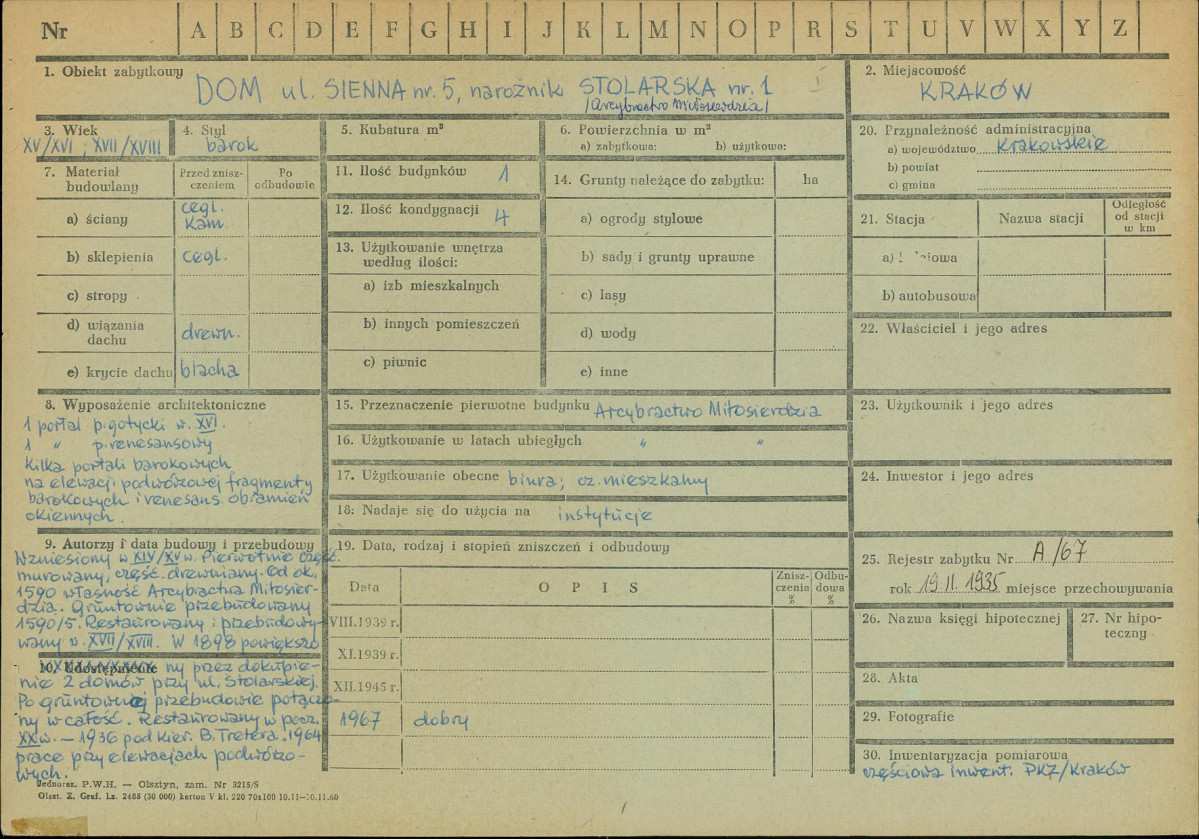 Nr A B C D E F G H I J K L M N O P R S T U V W X Y Z
1. Obiekt zabytkowy
DOM ul. SIENNA nr. 5, narożnik STOLARSKA nr. 1
/Arcybractwo Miłosierdzia/
2. Miejscowość
KRAKÓW
3. Wiek
XV/XVI ; XVII/XVIII
4. Styl
barok
5. Kubatura m³
6. Powierzchnia w m²
a) zabytkowa: b) użytkowa:
20. Przynależność administracyjna
a) województwo krakowskie
b) powiat
c) gmina
7. Materiał budowlany
Przed zniszczeniem
Po odbudowie
a) ściany cegl. kam.
b) sklepienia cegl.
c) stropy
d) wiązania dachu drewn.
e) krycie dachu blacha
11. Ilość budynków 1
12. Ilość kondygnacji 4
13. Użytkowanie wnętrza
według ilości:
a) izb mieszkalnych
b) innych pomieszczeń
c) piwnic
14. Grunty należące do zabytku: ha
a) ogrody stylowe
b) sady i grunty uprawne
c) lasy
d) wody
e) inne
21. Stacja Nazwa stacji Odległość od stacji w km
b) autobusowa
22. Właściciel i jego adres
8. Wyposażenie architektoniczne
1 portal p.gotycki w. XVI.
1 " p.renesansowy
kilka portali barokowych
na elewacji podwórzowej fragmenty
barokowych i renesans. obramień
okiennych.
15. Przeznaczenie pierwotne budynku Arcybractwo Miłosierdzia
16. Użytkowanie w latach ubiegłych " "
17. Użytkowanie obecne biura; cz. mieszkalny
18. Nadaje się do użycia na instytucje
23. Użytkownik i jego adres
24. Inwestor i jego adres
9. Autorzy i data budowy i przebudowy
Wzniesiony w XIV/XV w. Pierwotnie część.
murowany, część. drewniany. Od ok.
1590 własność Arcybractwa Miłosier-
dzia. Gruntownie przebudowany
1590/5. Restaurowany i przebudowy-
wany w. XVII/XVIII. W 1898 powiększo
10. Udostępnienie
ny przez dokupie-
nie 2 domów przy ul. Stolarskiej.
Po gruntownej przebudowie połączo-
ny w całość. Restaurowany w pocz.
XXw. – 1936 pod kier. B. Tretera. 1964
prace przy elewacjach podwórzo-
wych.
19. Data, rodzaj i stopień zniszczeń i odbudowy
Data OPIS Zniszczenia % Odbudowa %
VIII.1939 r.
XI.1939 r.
XII.1945 r.
1967 dobry
25. Rejestr zabytku Nr A/67
rok 19 II. 1935 miejsce przechowywania
26. Nazwa księgi hipotecznej
27. Nr hipoteczny
28. Akta
29. Fotografie
30. Inwentaryzacja pomiarowa
częściowa inwent. PKZ/Kraków
Jednoraz. P.W.H. — Olsztyn, zam. Nr 3215/S
Olszt. Z. Graf. Lz. 2485 (30 000) karton V kl. 220 70x100